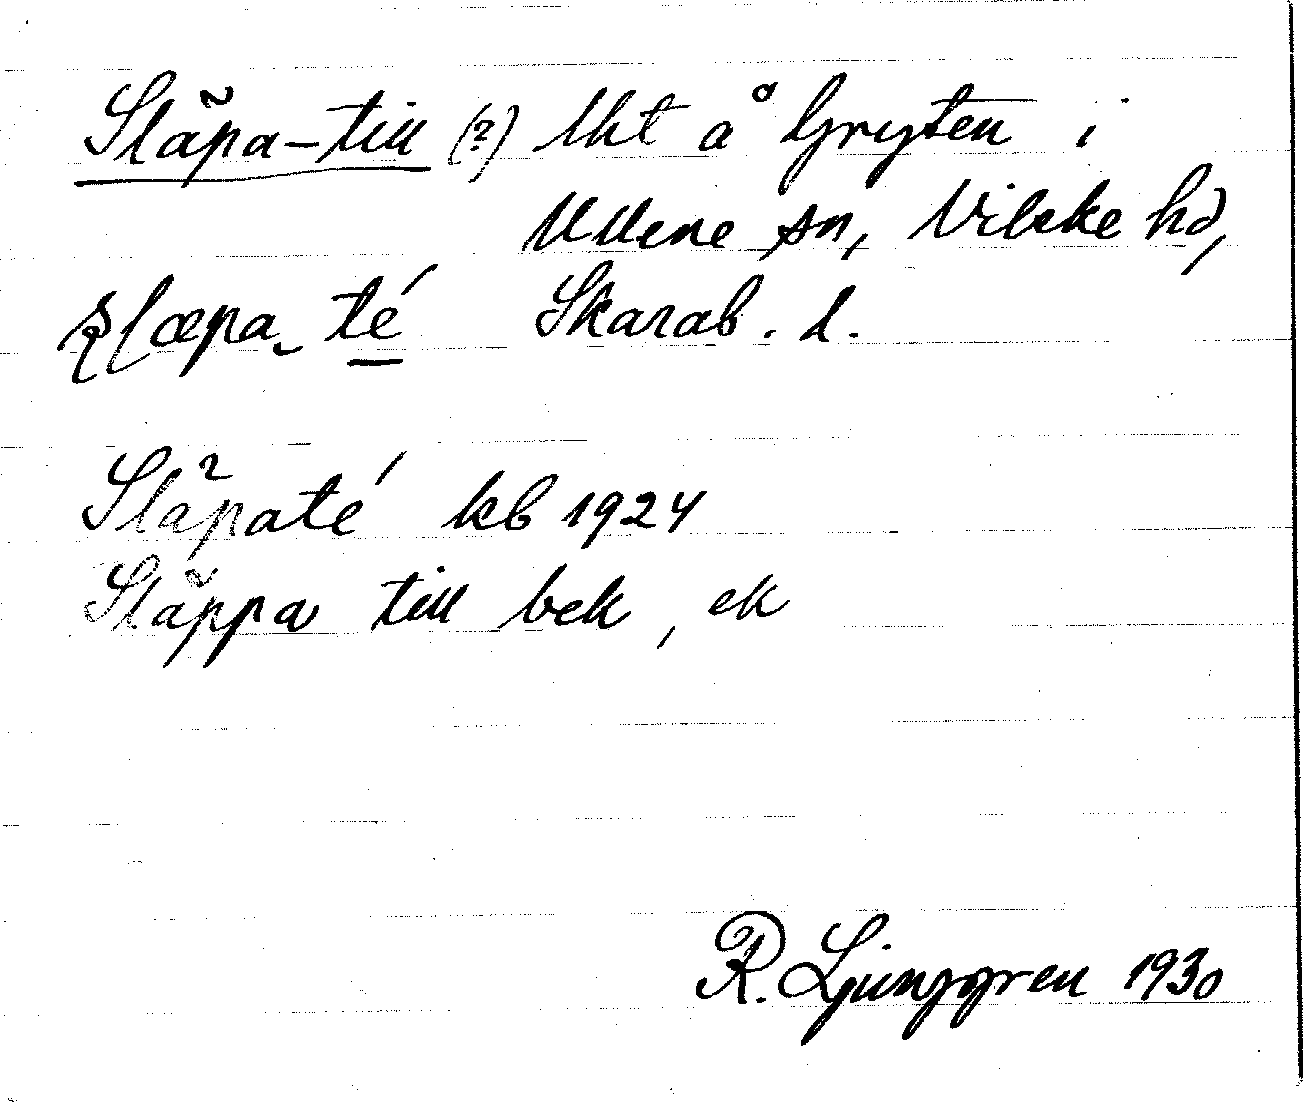 Släpa-till (?) lht å Gryten i
Ullene sn, Vilske hd,
slæpa té Skarab. l.
Släpaté kb 1924
Släppa till bek, ek
R. Ljunggren 1930